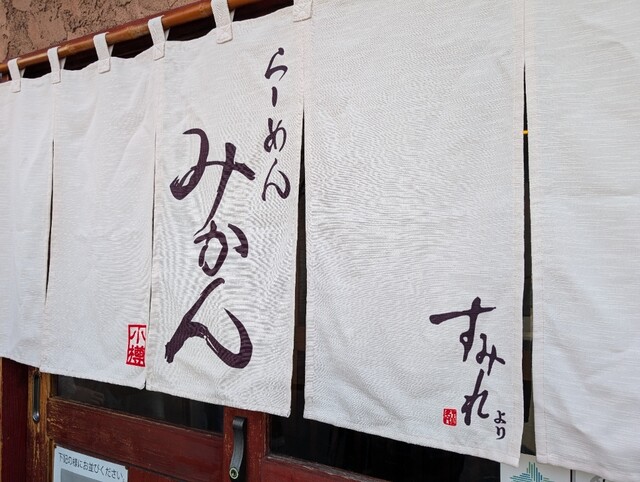 らーめん
みかん
小樽
すみれ
より
下記の様にお並びください